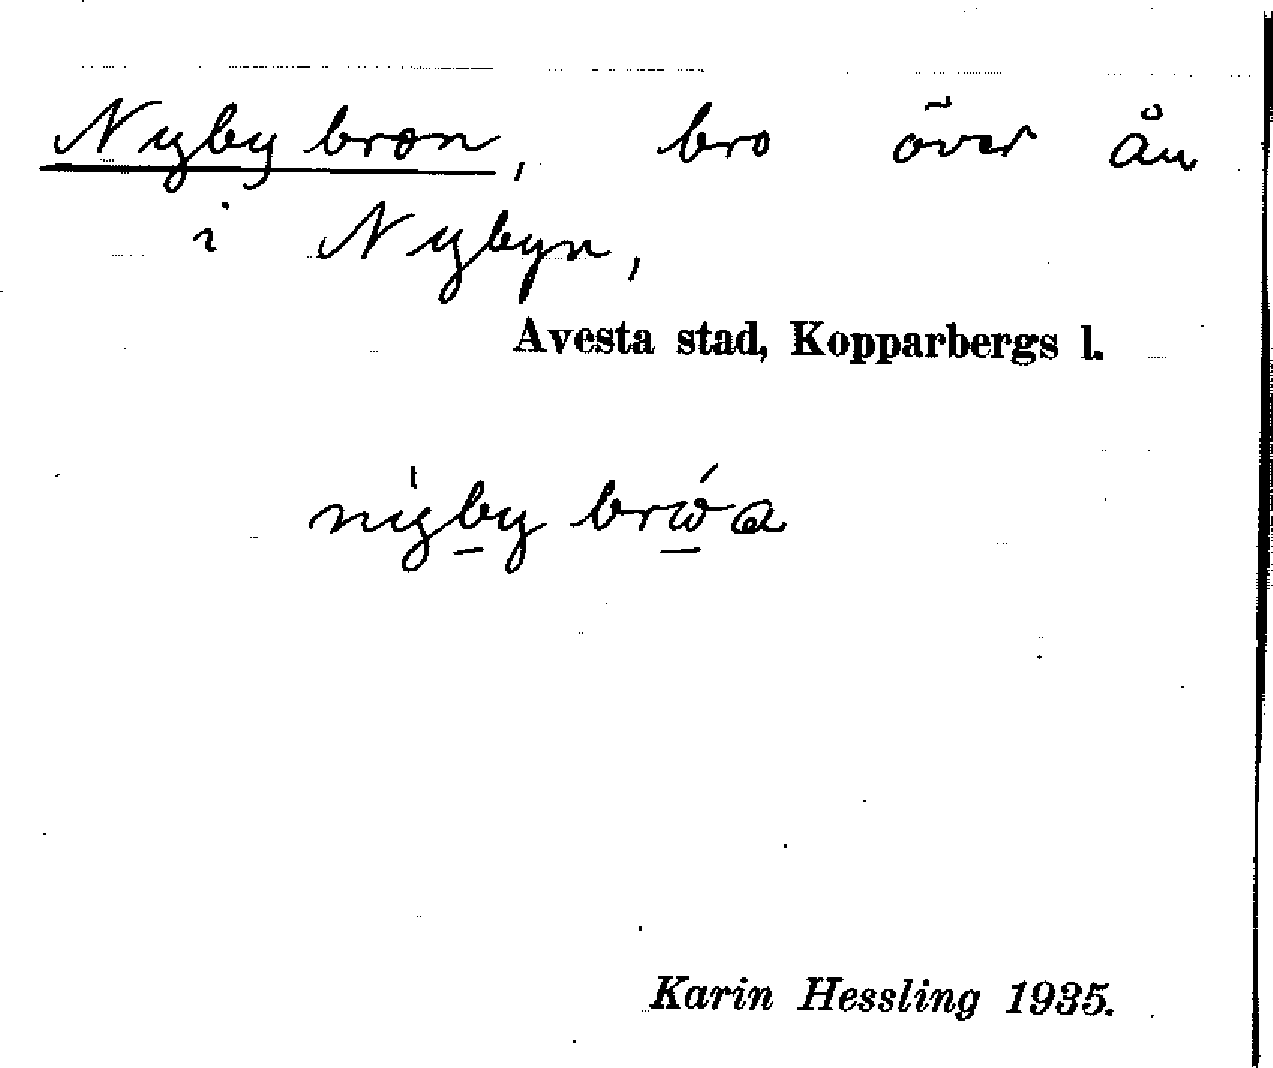 Nybybron, bro över ån
i Nybyn,
Avesta stad, Kopparbergs l.
Karin Hessling 1935.